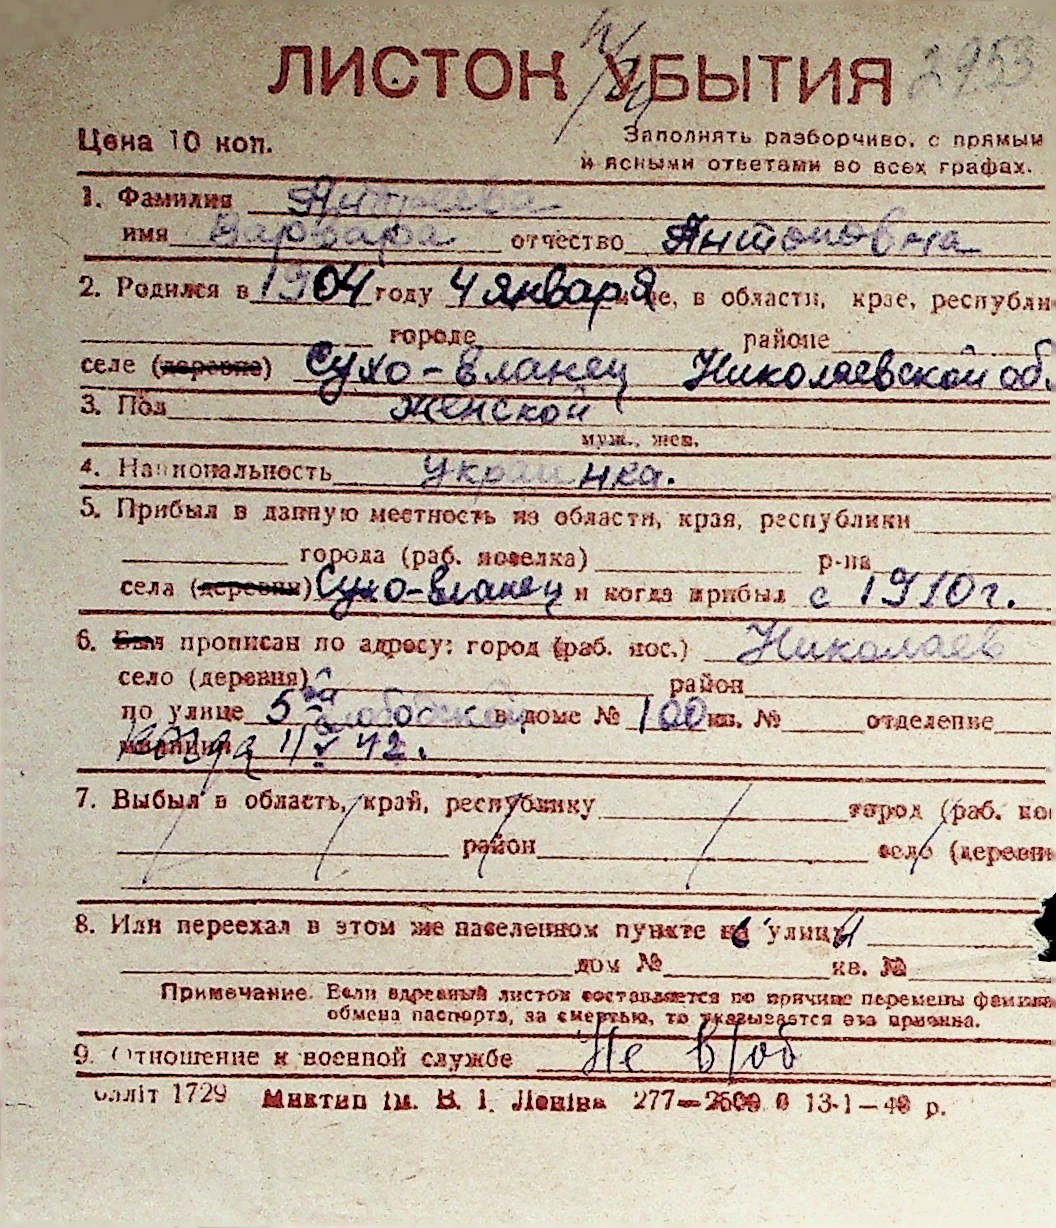 2953
ЛИСТОК УБЫТИЯ
Цена 10 коп.
Заполнять разборчиво, с прямым
и ясными ответами во всех графах.
1. Фамилия
имя Варвара отчество Антоновна
2. Родился в 1904 году 4 января м-це, в области, крае, республи
городе районе
селе (деревне) Сухо-вланец Николаевской об.
3. Пол женской
муж., жен.
4. Национальность украинка.
5. Прибыл в данную местность из области, края, республики
города (раб. поселка) р-на
села (деревни) Сухо-вланец и когда прибыл с 1910 г.
6. Был прописан по адресу: город (раб. пос.) Николаев
село (деревня) район
по улице 5 Слободской в доме № 100 кв. № отделение
милиции когда 42.
7. Выбыл в область, край, республику город (раб. пос
район село (деревне
8. Или переехал в этом же населенном пункте в улицы
дом № кв. №
Примечание. Если адресный листок составляется по причине перемены фамили
обмена паспорта, за смертью, то указывается эта причина.
9. Отношение к военной службе Не в/об
блліт 1729 Миктип ім. В. І. Леніна 277—2500 0 13-1—40 р.